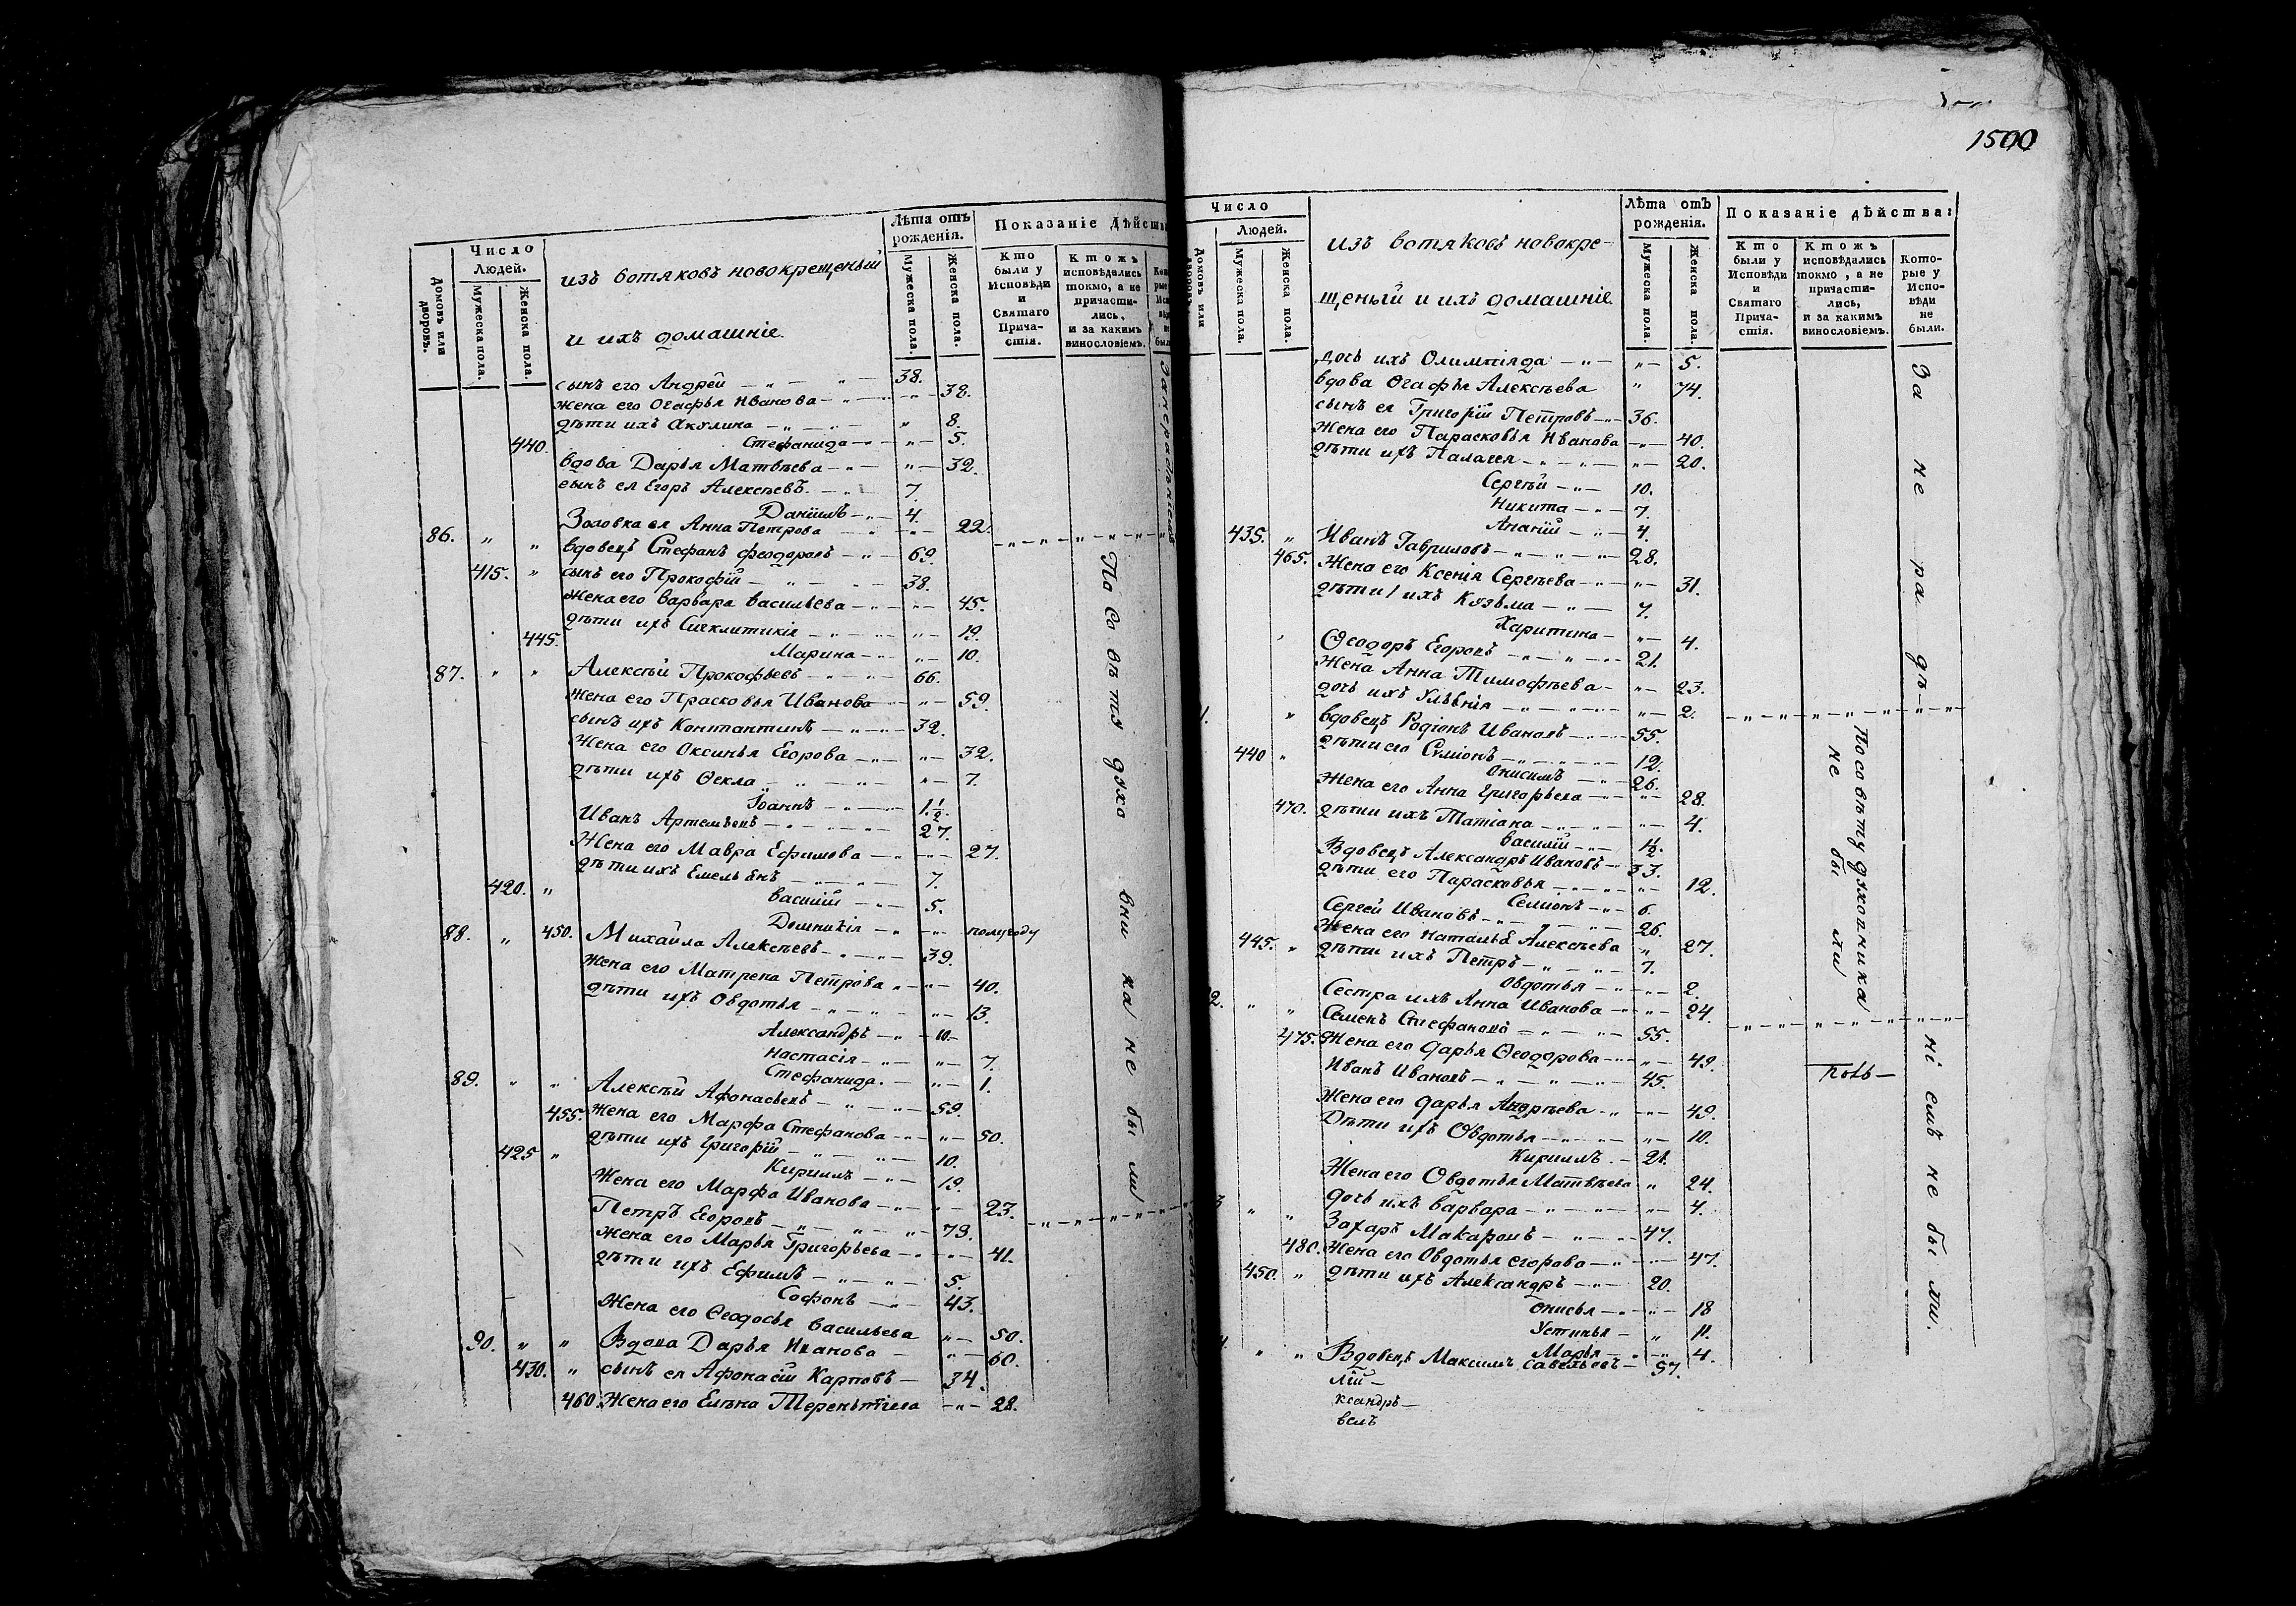 1500
Число
Людей.
Домовъ или дворовъ.
Мужеска пола.
Женска пола.
изъ вотяковъ новокрещеный
и ихъ домашніе
Лѣта отъ рожденія.
Мужеска пола.
Женска пола.
Показаніе дѣйства
Кто были у Исповѣди и Святаго Прича-стія.
Ктожъ исповѣдались токмо, а не причасти-лись, и за какимъ винословіемъ.
сынъ его Андрей 38.
жена его Огафья Иванова 38.
дѣти ихъ Акулина 8.
440. Стефанида 5.
вдова Дарья Матвѣева 32.
сынъ ея Егоръ Алексѣевъ 7.
Даніилъ 4.
Золовка ея Анна Петрова 22.
86. " " вдовецъ Стефанъ Феодоровъ 69.
415. " сынъ его Прокофій 38.
жена его Варвара Васильева 45.
дѣти ихъ Сигклитикія 19.
445. Марина 10.
87. " " Алексѣй Прокофьевъ 66.
жена его Прасковья Иванова 59.
сынъ ихъ Константинъ 32.
жена его Оксинья Егорова 32.
дѣти ихъ Ѳекла 7.
Іоаннъ 1 1/2.
Иванъ Артемьевъ 27.
жена его Мавра Ефимова 27.
дѣти ихъ Емельянъ 7.
420. " Василій 5.
450. Домникія полугоду
88. " Михайла Алексѣевъ 39.
жена его Матрена Петрова 40.
дѣти ихъ Овдотья 13.
Александръ 10
Настасія 7.
Стефанида 1.
89. " " Алексѣй Афонасьевъ 59.
455. жена его Марфа Стефанова 50.
дѣти ихъ Григорій 10.
425 " Кирилъ 19.
жена его Марфа Иванова 23.
Петръ Егоровъ 73.
жена его Марья Григорьева 41.
дѣти ихъ Ефимъ 5.
Софонъ 43.
жена его Ѳеодосья Васильева 50.
90. " " Вдова Дарья Иванова 60.
430. " сынъ ея Афонасій Карповъ 34.
460. жена его Елена Терентіева 28.
По совѣту духовника не были
Число
Людей.
Домовъ или
Мужеска пола.
Женска пола.
изъ вотяковъ новокре-
щеный и ихъ домашніе
Лѣта отъ рожденія.
Мужеска пола.
Женска пола.
Показаніе дѣйства:
Кто были у Исповѣди и Святаго Прича-стія.
Ктожъ исповѣдались токмо, а не причасти-лись, и за какимъ винословіемъ.
Кото-рые у Испо-вѣди не были.
дочь ихъ Олимпіяда 5.
вдова Огафья Алексѣева 74.
сынъ ея Григорій Петровъ 36.
жена его Парасковья Иванова 40.
дѣти ихъ Палагея 20.
Сергѣй 10.
Никита 7.
Ананій 4.
435. " Иванъ Гавриловъ 28.
465. жена его Ксенія Сергѣева 31.
дѣти ихъ Козьма 7.
Харитина 4.
Ѳеодоръ Егоровъ 21.
жена Анна Тимофѣева 23.
дочь ихъ Ульянія 2.
" вдовецъ Родіонъ Ивановъ 55.
440 " дѣти его Симіонъ 12.
Онисимъ 26.
жена его Анна Григорьева 28.
470. дѣти ихъ Татіана 4.
Василій 1 1/2.
Вдовецъ Александръ Ивановъ 33.
дѣти его Парасковья 12.
Семіонъ 6.
Сергей Ивановъ 26.
жена его Наталья Алексѣева 27.
445. " дѣти ихъ Петръ 7.
Овдотья 2
Сестра ихъ Анна Иванова 24.
2. " " Семенъ Стефановъ 55.
475. жена его Дарья Ѳеодорова 49.
Иванъ Ивановъ 45.
жена его Дарья Андрѣева 49.
Дѣти ихъ Овдотья 10.
Кирилъ 21.
жена его Овдотья Матвѣева 24.
дочь ихъ Варвара 4.
3 " " Захаръ Макаровъ 47.
480. жена его Овдотья Егорова 47.
450. " дѣти ихъ Александръ 20.
Онисья 18
Устинья 11.
Марья 4.
" " Вдовецъ Максимъ Савельевъ 57.
лій
ксандръ
велъ
За нераденіемъ не были.
По совѣту духовника не были